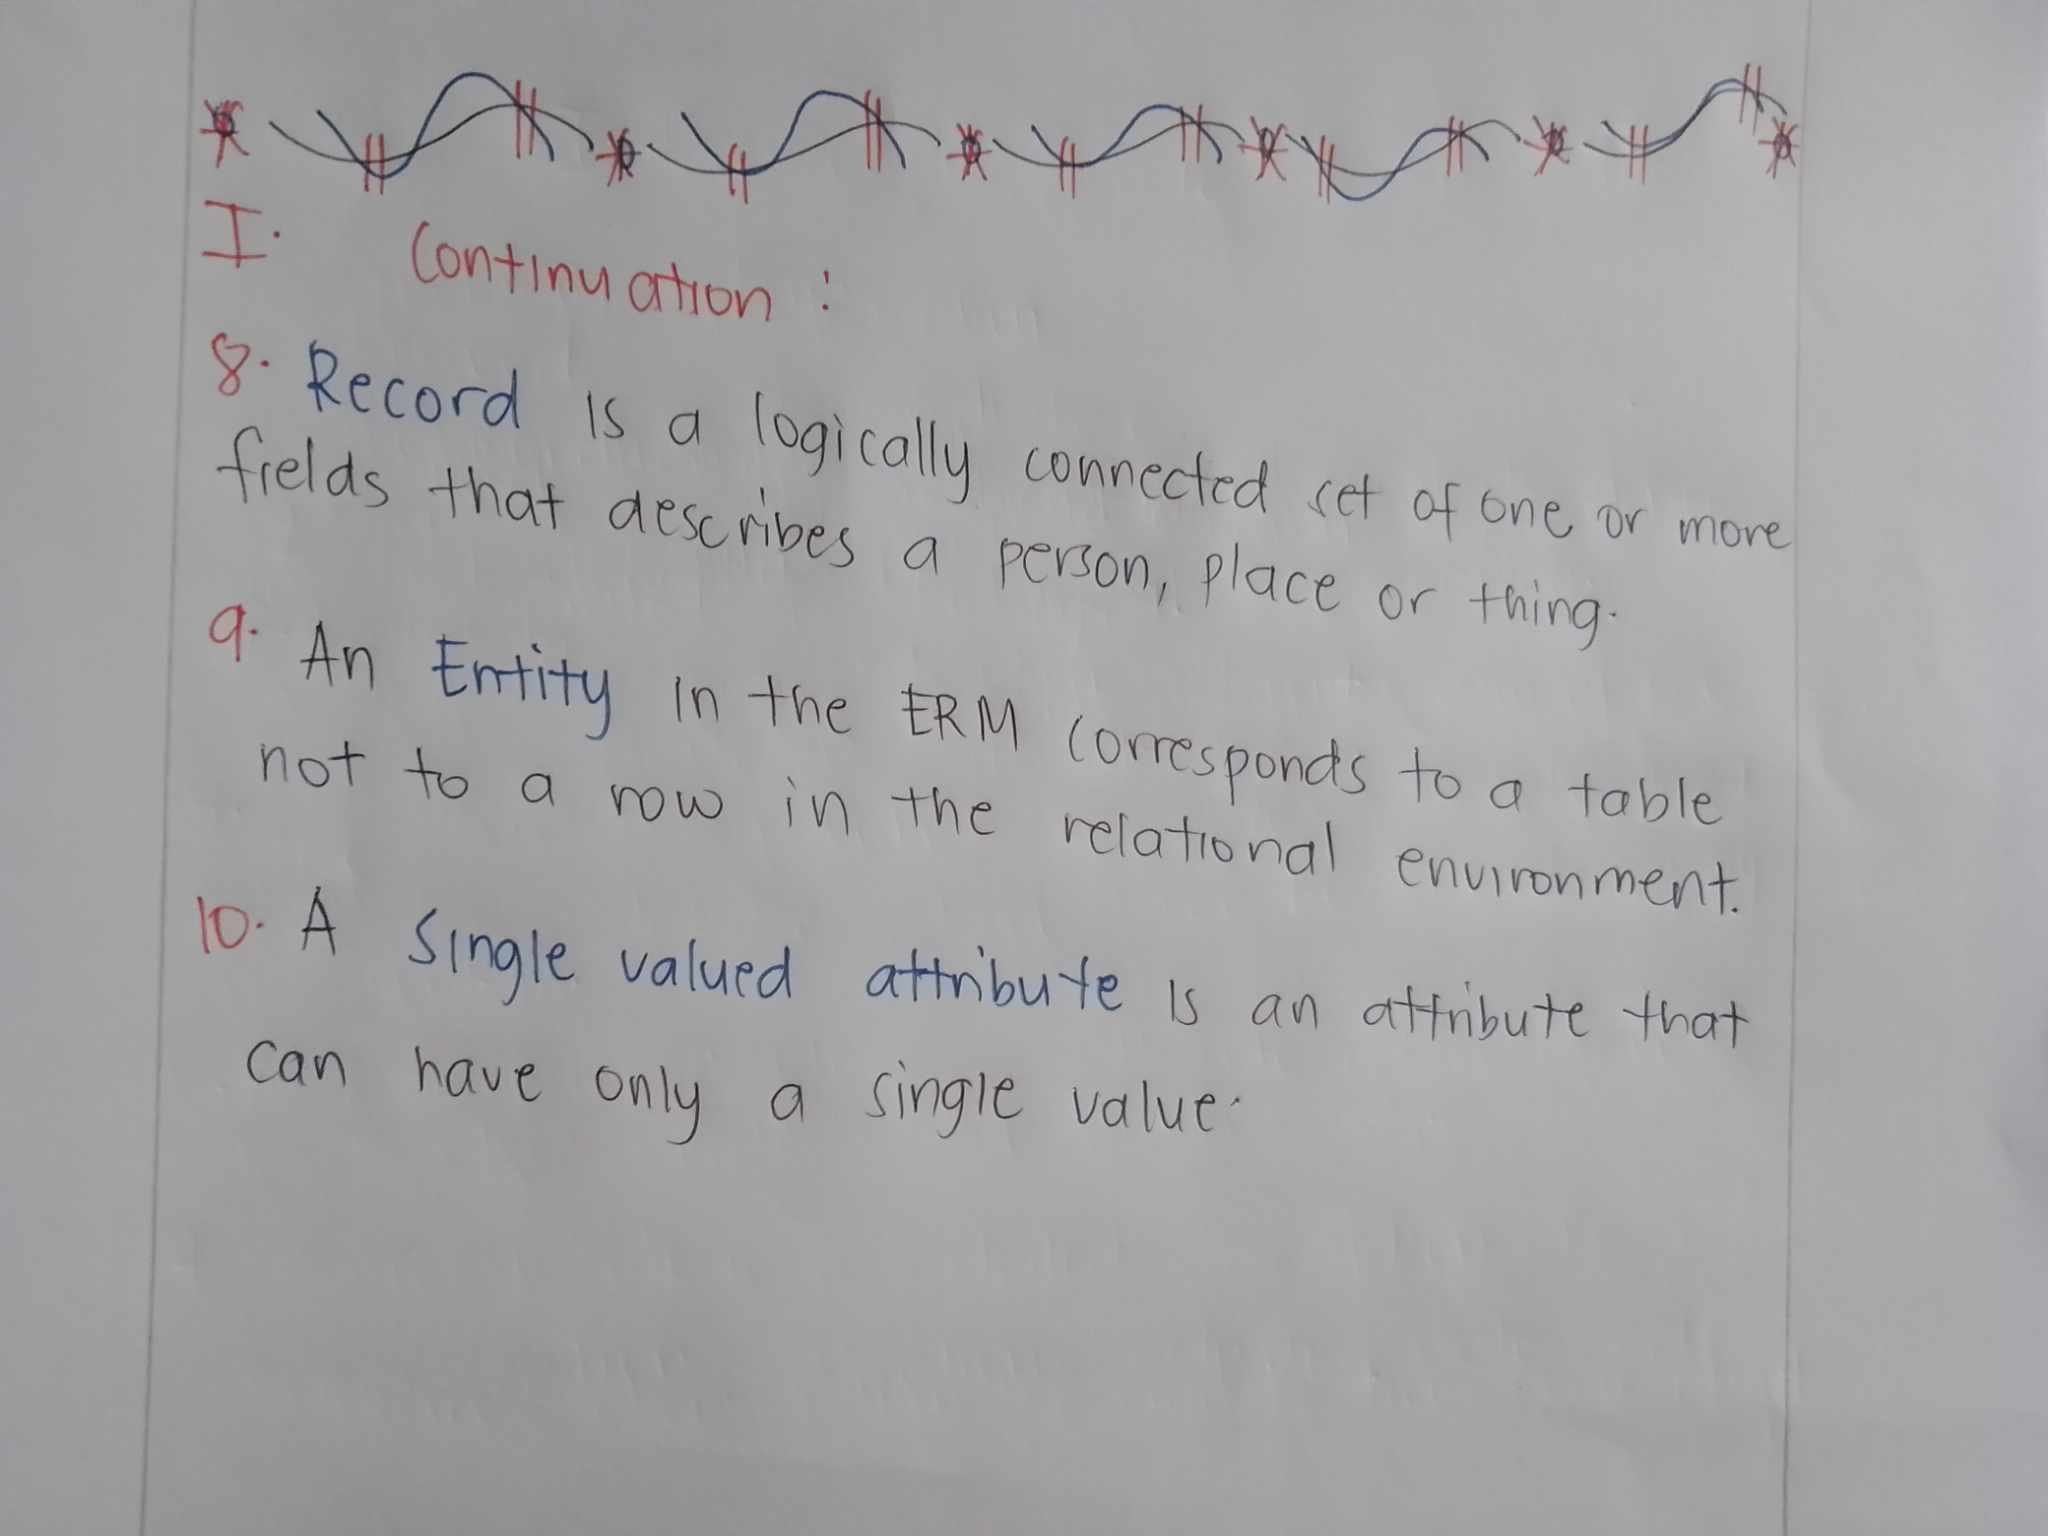 I. Continuation :
8. Record is a logically connected set of one or more
fields that describes a person, place or thing.
9. An Entity in the ERM corresponds to a table
not to a row in the relational environment.
10. A Single valued attribute is an attribute that
can have only a single value.